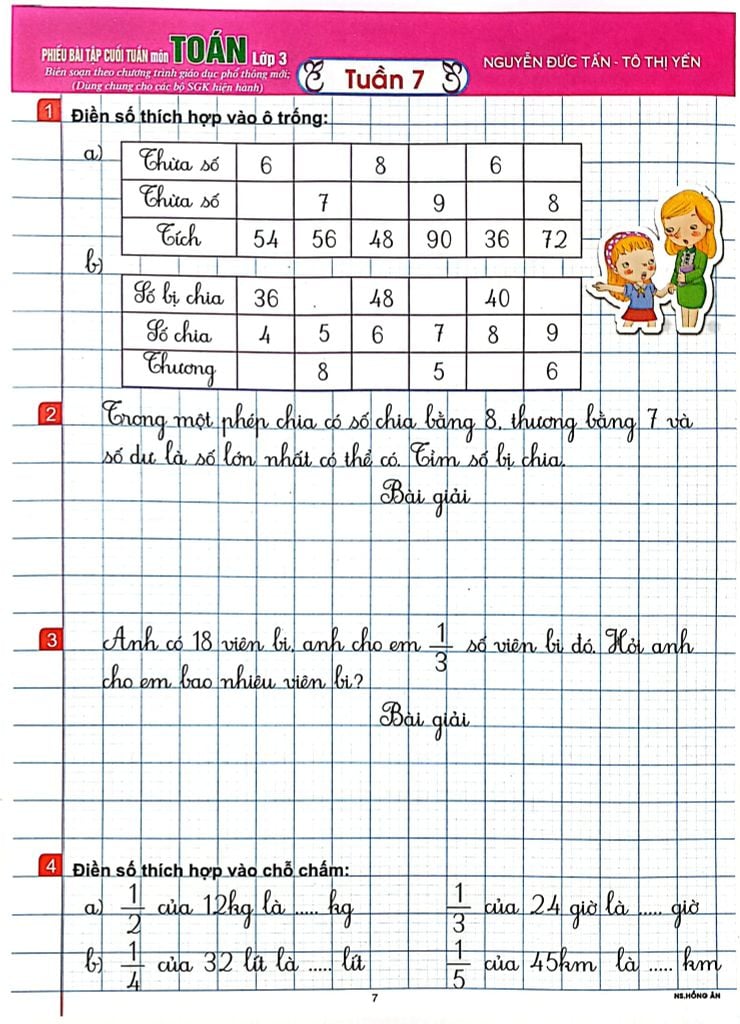 PHIẾU BÀI TẬP CUỐI TUẦN môn TOÁN Lớp 3
Biên soạn theo chương trình giáo dục phổ thông mới;
(Dùng chung cho các bộ SGK hiện hành)
Tuần 7
NGUYỄN ĐỨC TẤN - TÔ THỊ YẾN
1 Điền số thích hợp vào ô trống:
a)
Thừa số 6 8 6
Thừa số 7 9 8
Tích 54 56 48 90 36 72
b)
Số bị chia 36 . 48 40
Số chia 4 5 6 7 8 9
Thương 8 5 6
2 Trong một phép chia có số chia bằng 8, thương bằng 7 và
số dư là số lớn nhất có thể có. Tìm số bị chia.
Bài giải
3 Anh có 18 viên bi, anh cho em 1/3 số viên bi đó. Hỏi anh
cho em bao nhiêu viên bi?
Bài giải
4 Điền số thích hợp vào chỗ chấm:
a) 1/2 của 12kg là ..... kg 1/3 của 24 giờ là ..... giờ
b) 1/4 của 32 lít là ..... lít 1/5 của 45km là ..... km
7
NS.HỒNG ÂN